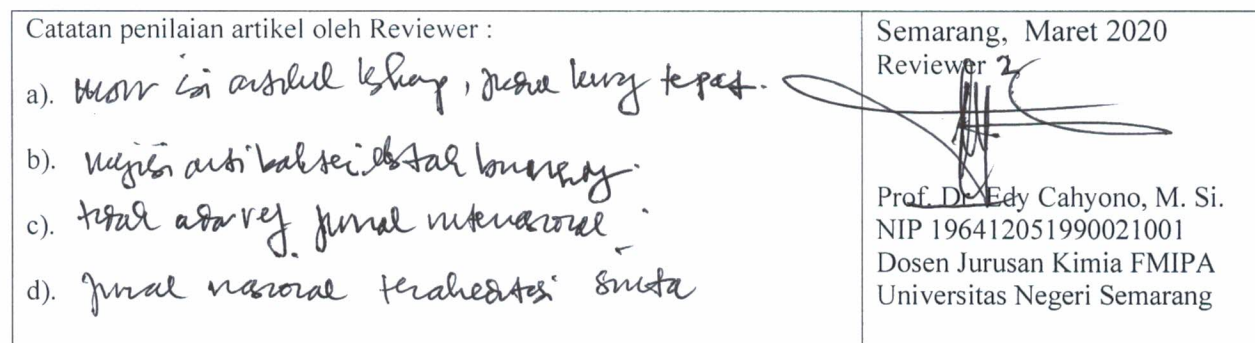 Catatan penilaian artikel oleh Reviewer :
a). isi artikel lengkap, kurang tepat.
b). anti bakteri
c). tidak ada ref jurnal internasional
d). jurnal nasional terakreditasi sinta
Semarang, Maret 2020
Reviewer 2
Prof. Dr. Edy Cahyono, M. Si.
NIP 196412051990021001
Dosen Jurusan Kimia FMIPA
Universitas Negeri Semarang